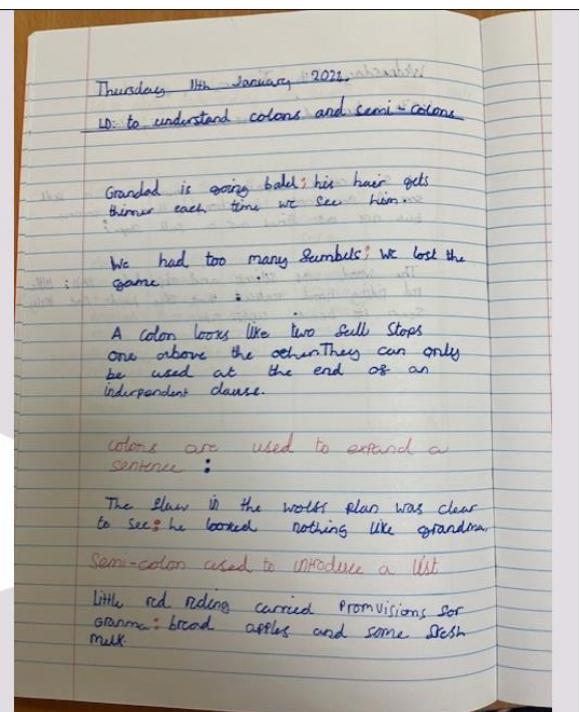 Thursday 11th January 2022.
LO: to understand colons and semi-colons
Grandad is going bald; his hair gets
thinner each time we see him.
We had too many fumbels; we lost the
game
:
A colon looks like two full stops
one above the other. They can only
be used at the end of an
independent clause.
colons are used to expand a
sentence :
The flaw in the wolfs plan was clear
to see: he looked nothing like grandma.
Semi-colon used to introduce a list
Little red riding carried promvisions for
Granma: bread apples and some fresh
milk.